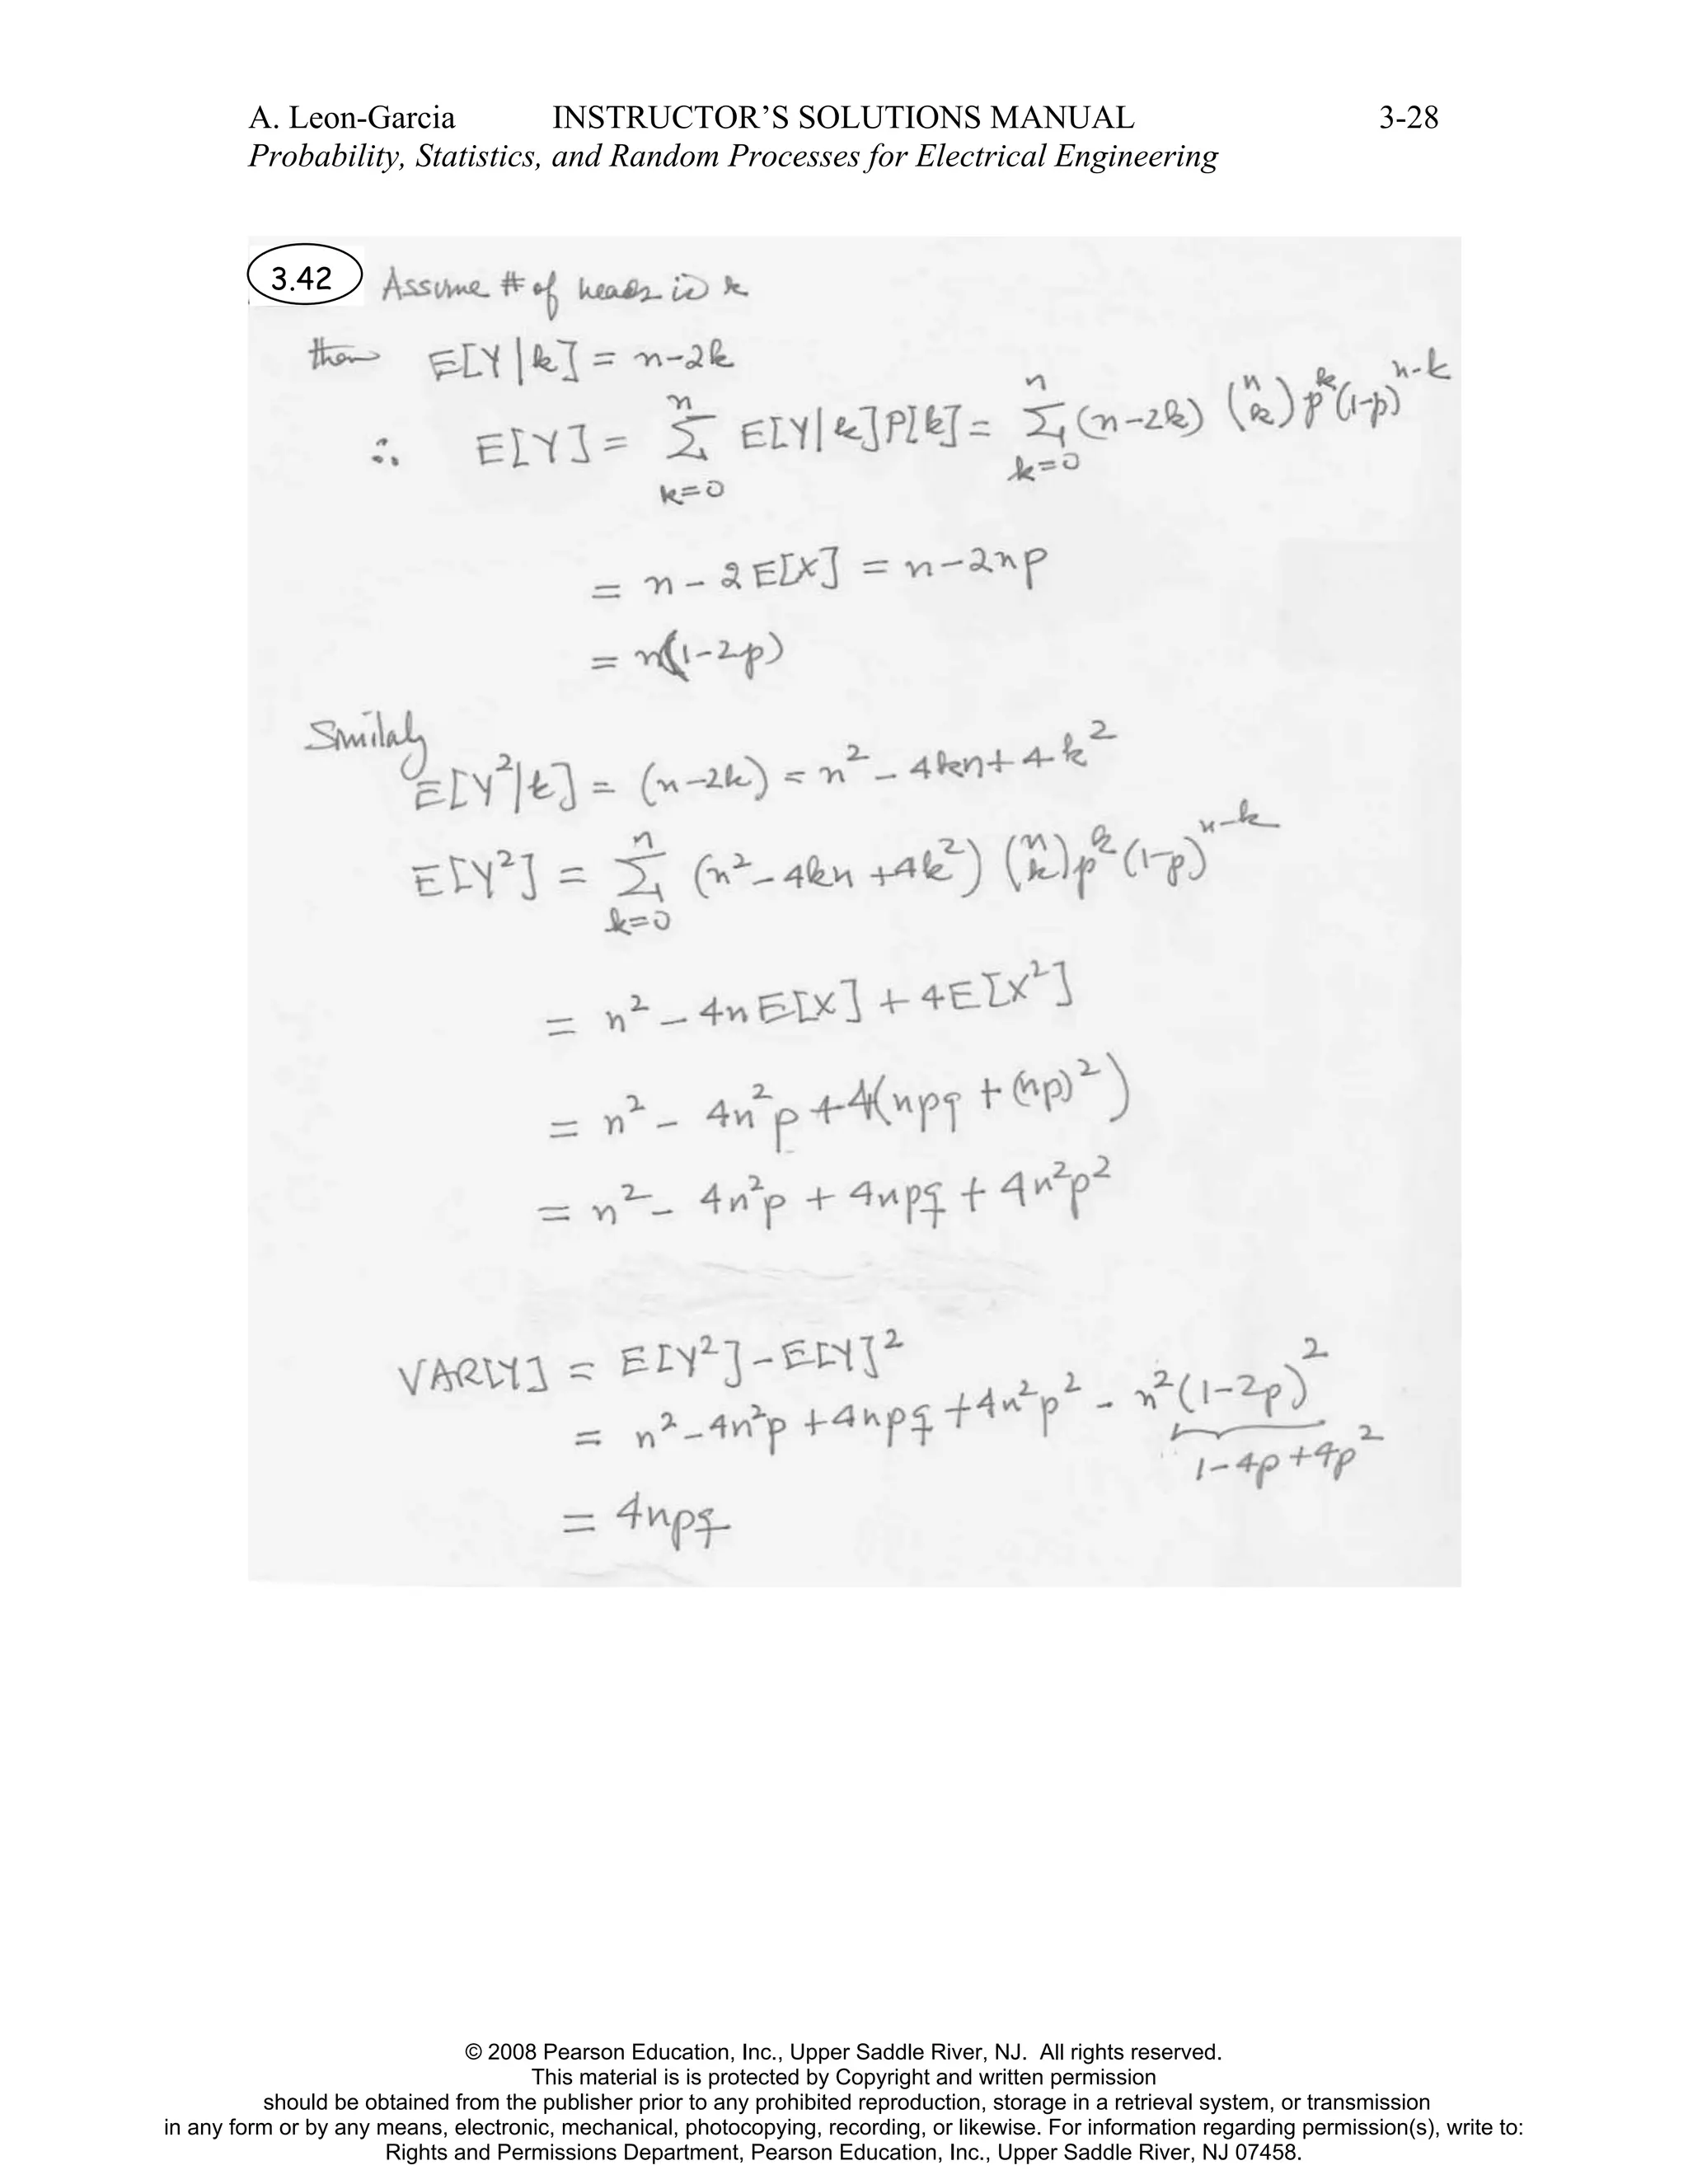 A. Leon-Garcia INSTRUCTOR'S SOLUTIONS MANUAL 3-28
Probability, Statistics, and Random Processes for Electrical Engineering
3.42 Assume # of heads is k
then E[Y|k] = n-2k
∴ E[Y] = Σ_{k=0}^{n} E[Y|k]P[k] = Σ_{k=0}^{n} (n-2k) (n k) p^k (1-p)^{n-k}
= n - 2E[X] = n-2np
= n(1-2p)
Similaly
E[Y²|k] = (n-2k) = n² - 4kn + 4k²
E[Y²] = Σ_{k=0}^{n} (n² - 4kn + 4k²) (n k) p^k (1-p)^{n-k}
= n² - 4nE[X] + 4E[X²]
= n² - 4n²p + 4(npq + (np)²)
= n² - 4n²p + 4npq + 4n²p²
VAR[Y] = E[Y²] - E[Y]²
= n² - 4n²p + 4npq + 4n²p² - n²(1-2p)²
1-4p+4p²
= 4npq
© 2008 Pearson Education, Inc., Upper Saddle River, NJ. All rights reserved.
This material is is protected by Copyright and written permission
should be obtained from the publisher prior to any prohibited reproduction, storage in a retrieval system, or transmission
in any form or by any means, electronic, mechanical, photocopying, recording, or likewise. For information regarding permission(s), write to:
Rights and Permissions Department, Pearson Education, Inc., Upper Saddle River, NJ 07458.